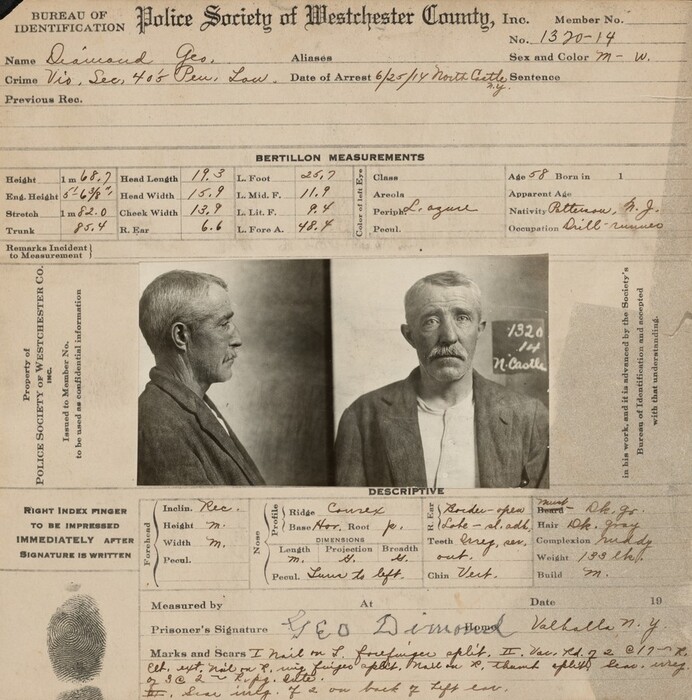 BUREAU OF IDENTIFICATION Police Society of Westchester County, Inc. Member No.
No. 1320-14
Name Diamond Geo. Aliases Sex and Color M- W.
Crime Vio. Sec. 405 Pen. Law. Date of Arrest 6/25/14 North Castle N.Y. Sentence
Previous Rec.
BERTILLON MEASUREMENTS
Height 1 m 68.7 Head Length 19.3 L. Foot 25.7 Class Age 58 Born in 1
Eng. Height 5'-6 3/8" Head Width 15.9 L. Mid. F. 11.9 Areola Apparent Age
Stretch 1 m 82.0 Cheek Width 13.9 L. Lit. F. 9.4 Periph L. azure Nativity Patterson, N.J.
Trunk 85.4 R. Ear 6.6 L. Fore A. 48.4 Pecul. Occupation Drill-runner
Color of left Eye
Remarks Incident to Measurement
Property of
POLICE SOCIETY OF WESTCHESTER CO. INC.
Issued to Member No.
to be used as confidential information
1320
14
N. Castle
in his work, and it is advanced by the Society's
Bureau of Identification and accepted
with that understanding.
DESCRIPTIVE
RIGHT INDEX FINGER
TO BE IMPRESSED
IMMEDIATELY AFTER
SIGNATURE IS WRITTEN
Forehead
Inclin. Rec.
Height m.
Width m.
Pecul.
Nose
Profile
Ridge Convex
Base Hor. Root p.
DIMENSIONS
Length Projection Breadth
m. G. G.
Pecul. Turns to left.
R. Ear
Border-open
Lobe-sl. adh.
Teeth Irreg. sev.
out.
Chin Vert.
Must
Beard Dk. gr.
Hair Dk. gray
Complexion ruddy
Weight 133 lb.
Build M.
Measured by At Date 19
Prisoner's Signature GEO Dimond Home Valhalla N.Y.
Marks and Scars I Nail on L. forefinger split. II. Vac. Rd. of 2 C 17 R.
Elb. ext. Nail on R. mid finger split. Nail on R. thumb split. Scar.
of 3 C 2
III. Scar of 2 on back of left ear.